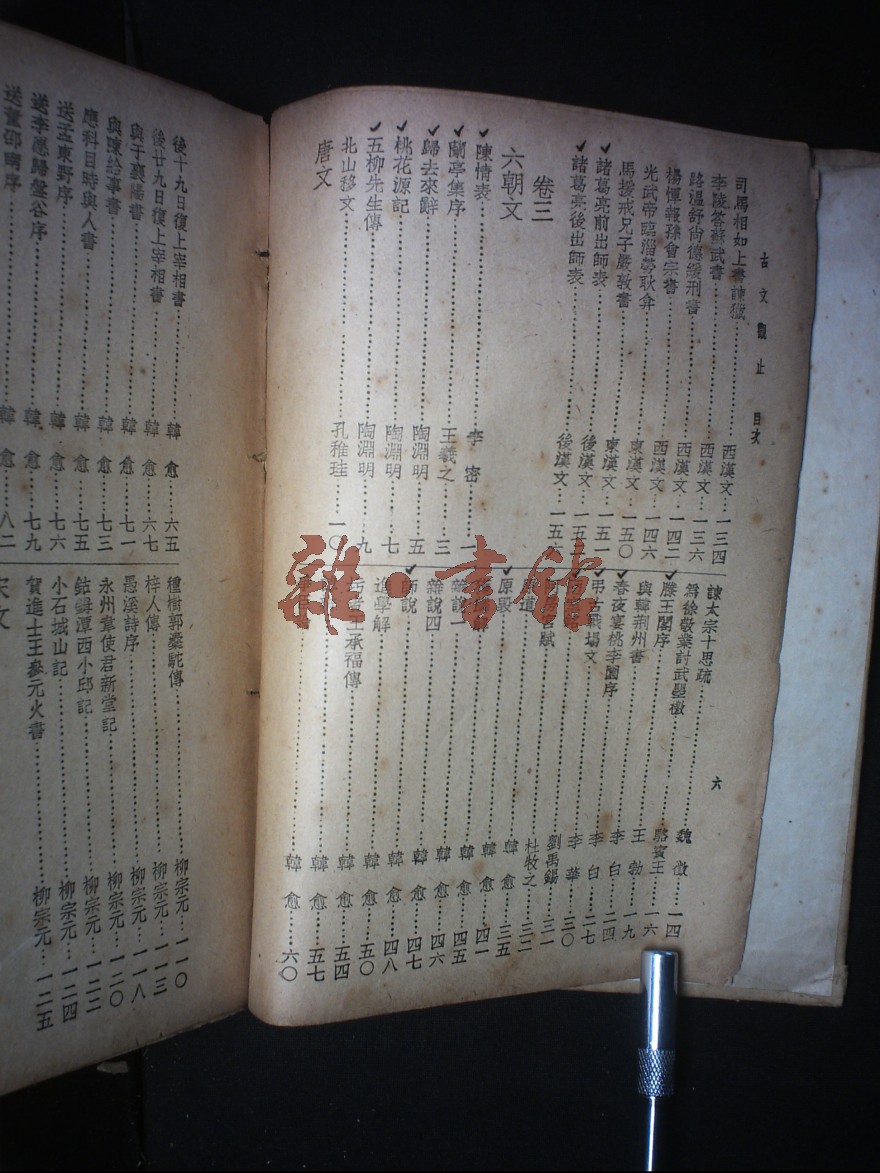 古文觀止 目次 六
司馬相如上書諫獵 西漢文 一三四
李陵答蘇武書 西漢文 一三六
路溫舒尚德緩刑書 西漢文 一四二
楊惲報孫會宗書 西漢文 一四六
光武帝臨淄勞耿弇 東漢文 一五〇
馬援戒兄子嚴敦書 東漢文 一五一
諸葛亮前出師表 後漢文 一五
諸葛亮後出師表 後漢文 一五六
卷三
六朝文
陳情表 李密 一
蘭亭集序 王羲之 三
歸去來辭 陶淵明 五
桃花源記 陶淵明 七
五柳先生傳 陶淵明 九
北山移文 孔稚珪 一〇
唐文
諫太宗十思疏 魏徵 一四
爲徐敬業討武曌檄 駱賓王 一六
滕王閣序 王勃 一九
與韓荊州書 李白 二四
春夜宴桃李園序 李白 二七
弔古戰場文 李華 三〇
劉禹錫 三一
賦 杜牧之 三二
原道 韓愈 三五
原毀 韓愈 四一
韓愈 四五
雜說一 韓愈 四六
雜說四 韓愈 四七
師說 韓愈 四八
進學解 韓愈 五〇
王承福傳 韓愈 五四
韓愈 五七
韓愈 六〇
後十九日復上宰相書 韓愈 六五
後廿九日復上宰相書 韓愈 六七
與于襄陽書 韓愈 七一
與陳給事書 韓愈 七三
應科目時與人書 韓愈 七五
送孟東野序 韓愈 七六
送李愿歸盤谷序 韓愈 七九
送董邵南序 韓愈 八二
種樹郭橐駝傳 柳宗元 一一〇
梓人傳 柳宗元 一一三
愚溪詩序 柳宗元 一一八
永州韋使君新堂記 柳宗元 一二〇
鈷鉧潭西小邱記 柳宗元 一二二
小石城山記 柳宗元 一二四
賀進士王參元火書 柳宗元 一二五
宋文
雜·書館